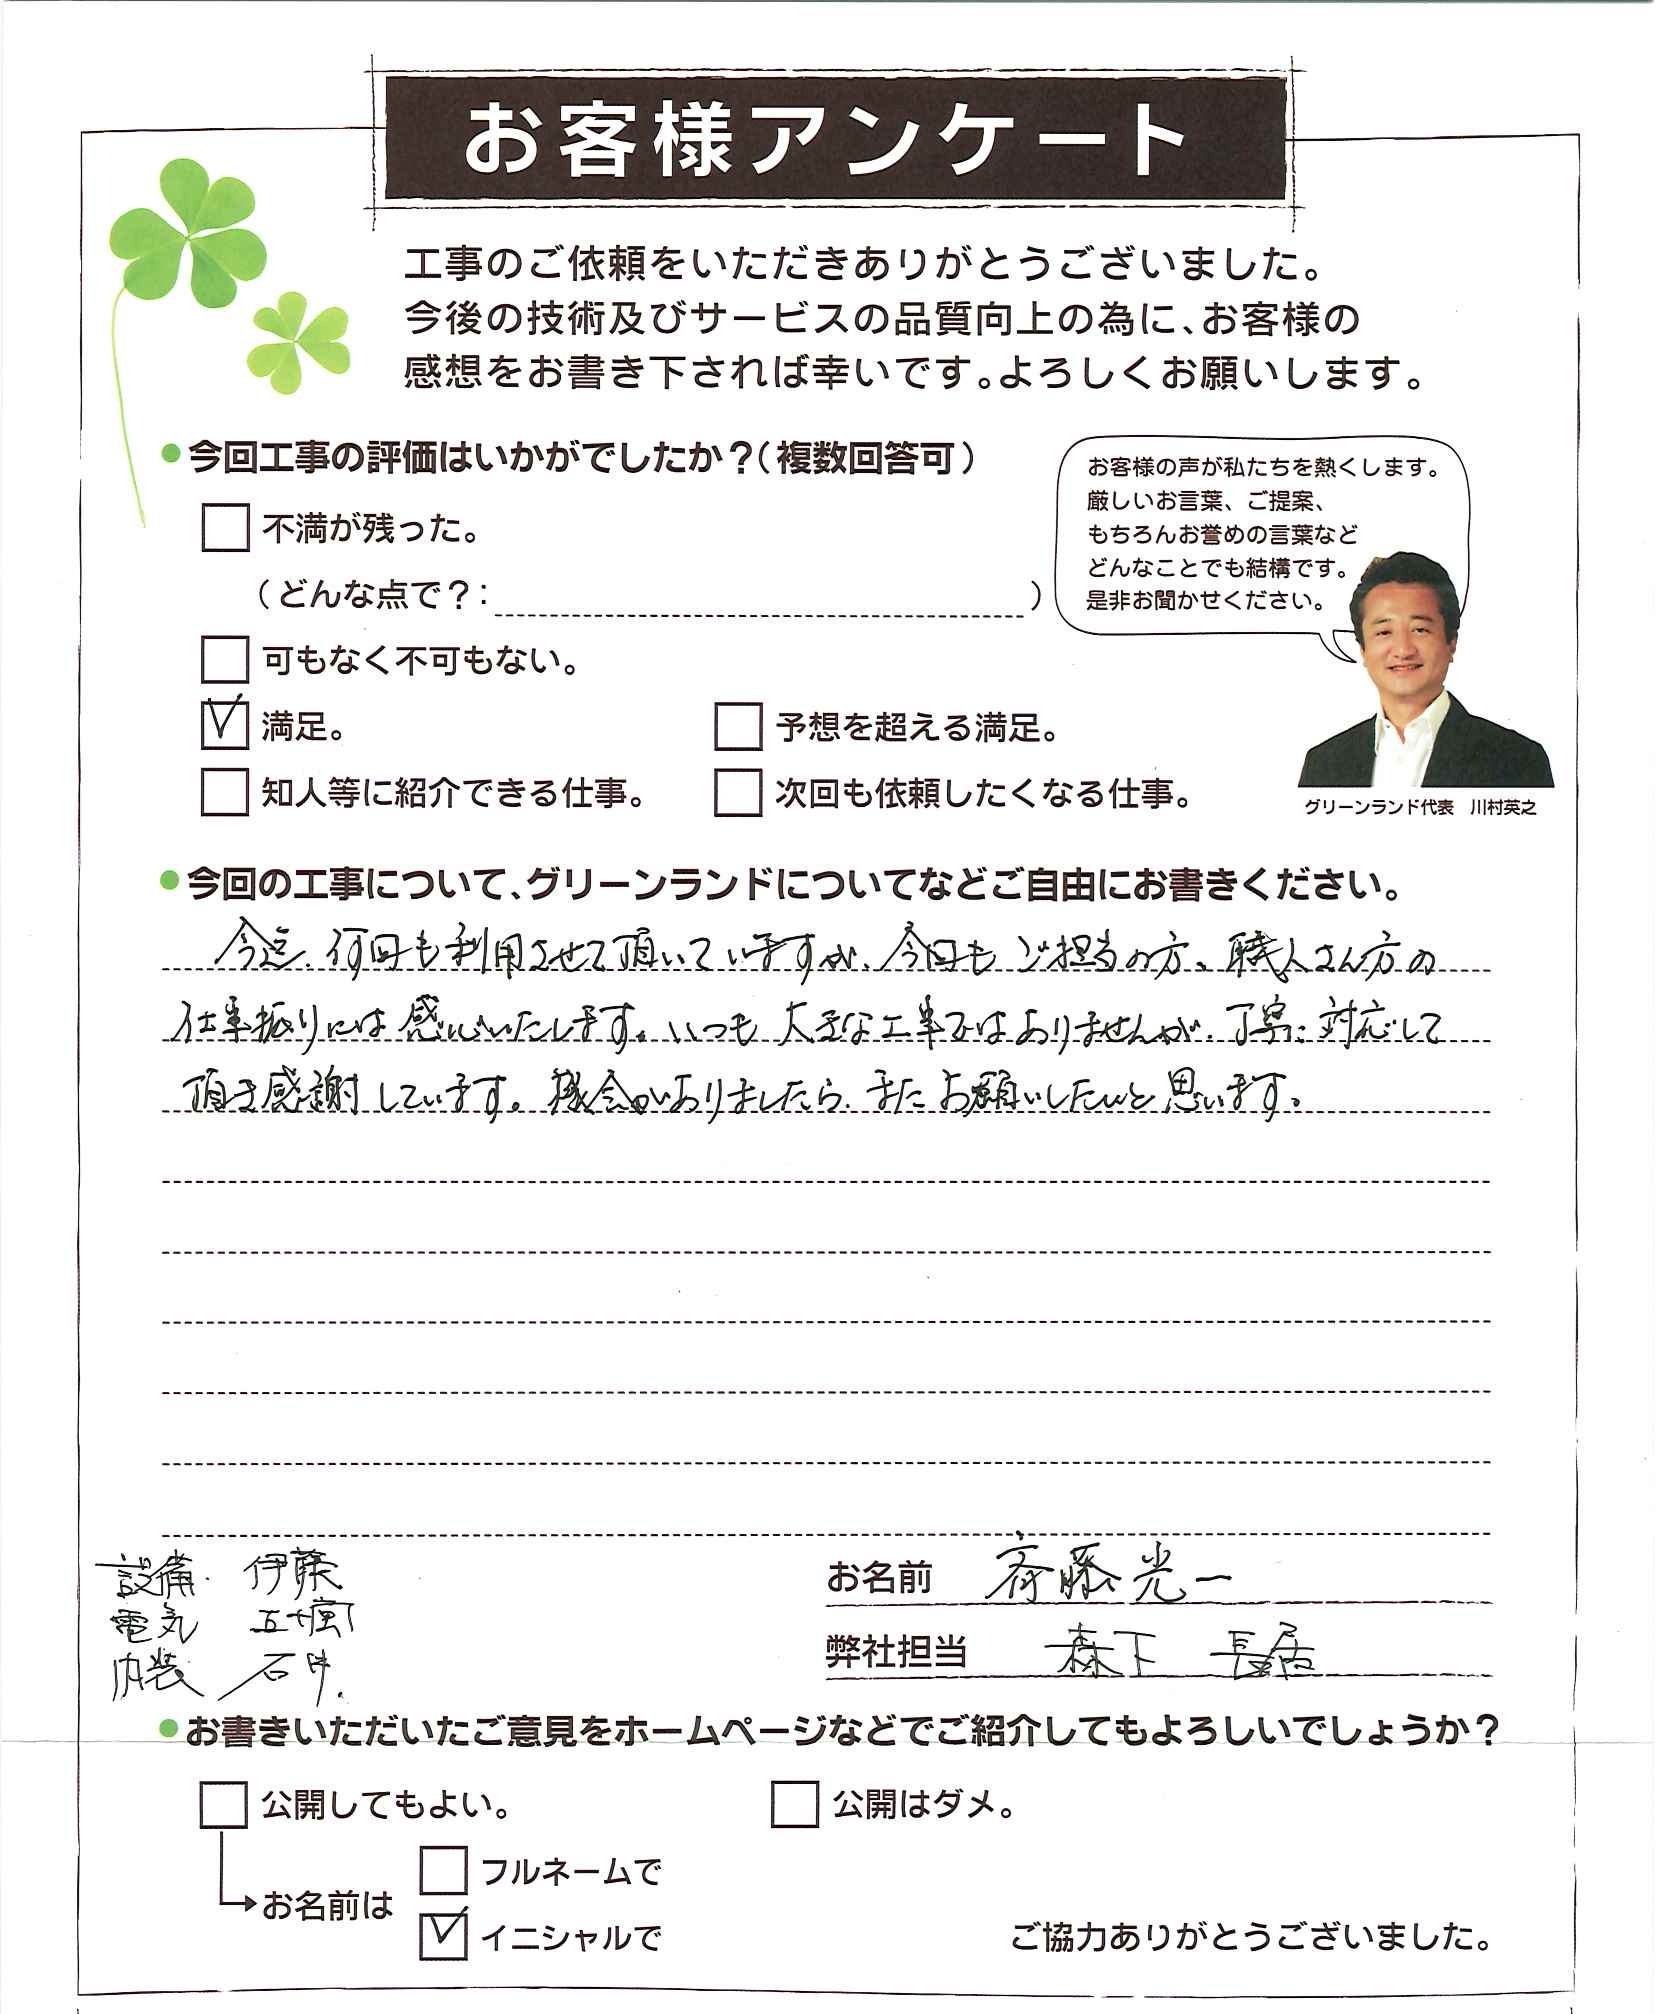 お客様アンケート
工事のご依頼をいただきありがとうございました。
今後の技術及びサービスの品質向上の為に、お客様の
感想をお書き下されば幸いです。よろしくお願いします。
●今回工事の評価はいかがでしたか？（複数回答可）
お客様の声が私たちを熱くします。
厳しいお言葉、ご提案、
もちろんお誉めの言葉など
どんなことでも結構です。
是非お聞かせください。
不満が残った。
（どんな点で？：　）
可もなく不可もない。
満足。
予想を超える満足。
知人等に紹介できる仕事。
次回も依頼したくなる仕事。
グリーンランド代表　川村英之
●今回の工事について、グリーンランドについてなどご自由にお書きください。
今迄、何回も利用させて頂いていますが、今回もご担当の方、職人さん方の
仕事振りには感心いたします。いつも大きな工事ではありませんが、丁寧に対応して
頂き感謝しています。機会がありましたら、またお願いしたいと思います。
設備　伊藤
電気　五十嵐
内装　石井
お名前　斉藤光一
弊社担当　森下　長居
●お書きいただいたご意見をホームページなどでご紹介してもよろしいでしょうか？
公開してもよい。
公開はダメ。
お名前は
フルネームで
イニシャルで
ご協力ありがとうございました。